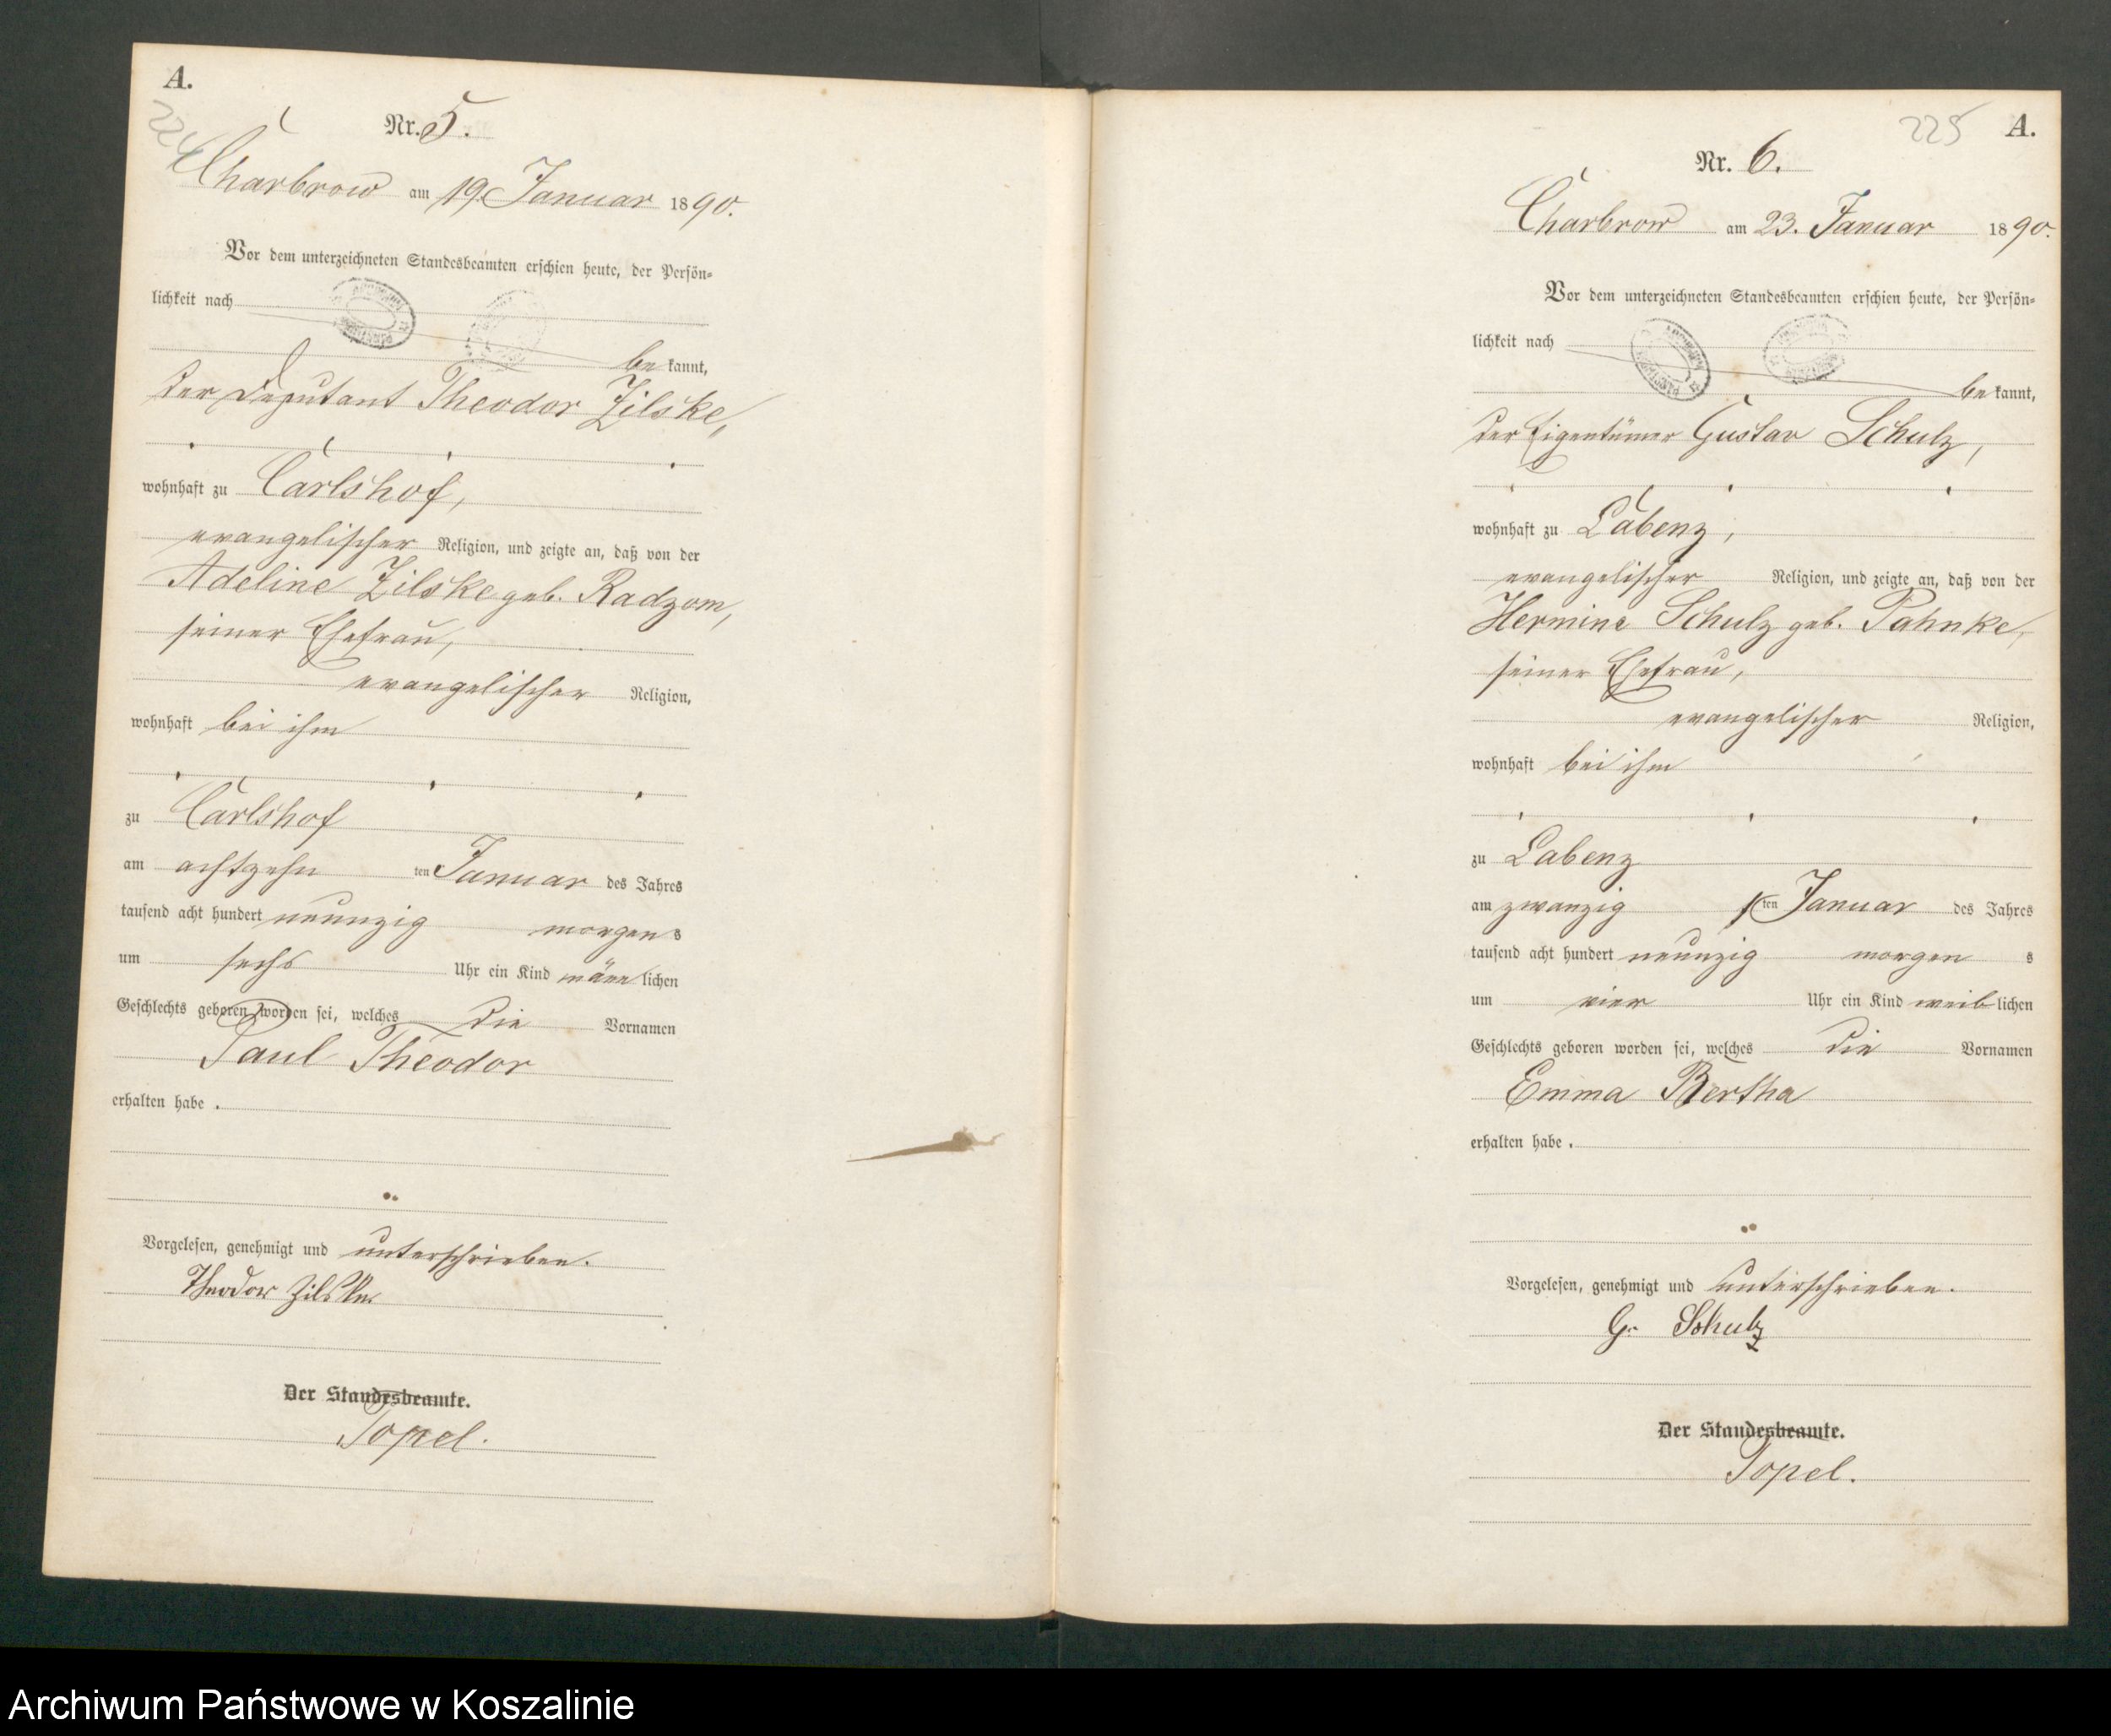 A.
224
Nr. 5.
Charbrow am 19. Januar 1890.
Vor dem unterzeichneten Standesbeamten erschien heute, der Persön-
lichkeit nach
be kannt,
der Deputant Theodor Zilske,
wohnhaft zu Carlshof,
evangelischer Religion, und zeigte an, daß von der
Adeline Zilske geb. Radzom,
seiner Ehefrau,
evangelischer Religion,
wohnhaft bei ihm
zu Carlshof
am achtzehn ten Januar des Jahres
tausend acht hundert neunzig morgen s
um sechs Uhr ein Kind männ lichen
Geschlechts geboren worden sei, welches die Vornamen
Paul Theodor
erhalten habe.
Vorgelesen, genehmigt und unterschrieben.
Theodor Zilske
Der Standesbeamte.
Topel.
225
A.
Nr. 6.
Charbrow am 23. Januar 1890.
Vor dem unterzeichneten Standesbeamten erschien heute, der Persön-
lichkeit nach
be kannt,
der Eigentümer Gustav Schulz,
wohnhaft zu Labenz,
evangelischer Religion, und zeigte an, daß von der
Hermine Schulz geb. Pahnke,
seiner Ehefrau,
evangelischer Religion,
wohnhaft bei ihm
zu Labenz
am zwanzig sten Januar des Jahres
tausend acht hundert neunzig morgen s
um vier Uhr ein Kind weib lichen
Geschlechts geboren worden sei, welches die Vornamen
Emma Bertha
erhalten habe.
Vorgelesen, genehmigt und unterschrieben.
G. Schulz
Der Standesbeamte.
Topel.
Archiwum Państwowe w Koszalinie